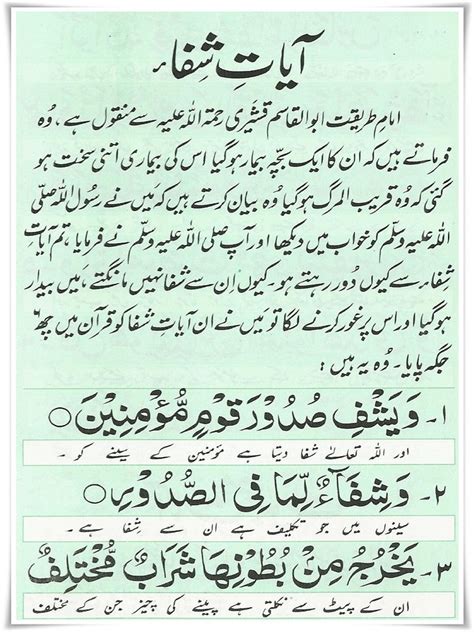 آیاتِ شِفاء
امام طریقت ابوالقاسم قشیری رحمۃ اللہ علیہ سے منقول ہے، وُہ
فرماتے ہیں کہ ان کا ایک بچّہ بیمار ہوگیا اس کی بیماری اتنی سخت ہو
گئی کہ وُہ قریب المرگ ہوگیا وُہ بیان کرتے ہیں کہ مَیں نے رسُول اللہ صلّی
اللہ علیہ وسلّم کو خواب میں دیکھا اور آپ صلی اللہ علیہ وسلّم نے فرمایا، تم آیاتِ
شِفاء سے کیوں دُور رہتے ہو۔ کیوں اِن سے شفا نہیں مانگتے، میں بیدار
ہوگیا اور اس پر غور کرنے لگا تو مَیں نے ان آیاتِ شفا کو قرآن میں چھ ۶
جگہ پایا۔ وُہ یہ ہیں:
۱۔ وَيَشْفِ صُدُوْرَ قَوْمٍ مُّؤْمِنِيْنَ ○
اور اللہ تعالےٰ شفا دیتا ہے مؤمنین کے سینے کو ۔
۲۔ وَشِفَآءٌ لِّمَا فِی الصُّدُوْرِ ○
سینوں میں جو تکلیف ہے ان سے شِفا ہے ۔
۳۔ يَخْرُجُ مِنْ بُطُوْنِهَا شَرَابٌ مُّخْتَلِفٌ
ان کے پیٹ سے نکلتی ہے پینے کی چیز جن کے مختلف